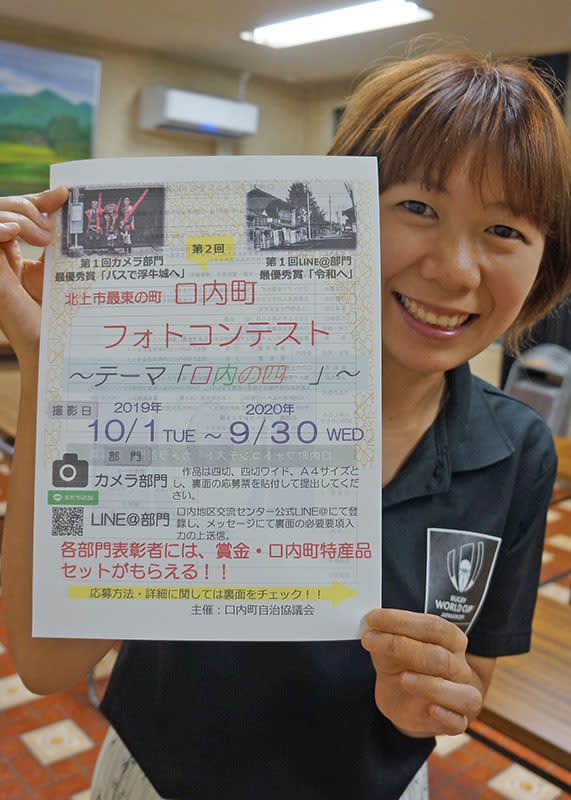 第2回
第1回カメラ部門
最優秀賞「バスで浮牛城へ」
第1回LINE@部門
最優秀賞「令和へ」
北上市最東の町 口内町
フォトコンテスト
～テーマ「口内の四 」～
撮影日 2019年 2020年
10/1 TUE ～ 9/30 WED
部 門
カメラ部門
作品は四切、四切ワイド、A4サイズとし、裏面の応募票を貼付して提出してください。
LINE@部門
口内地区交流センター公式LINE@にて登録し、メッセージにて裏面の必要要項入力の上送信。
各部門表彰者には、賞金・口内町特産品
セットがもらえる！！
応募方法・詳細に関しては裏面をチェック！！
主催：口内町自治協議会
RUGBY
WORLD CUP